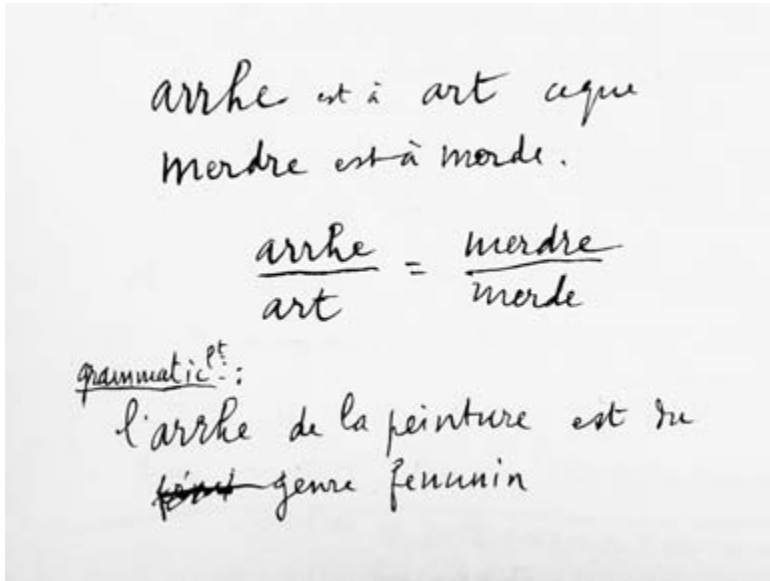 arrhe est à art ce que
merdre est à merde.
arrhe = merdre
art merde
grammatic^lt :
l'arrhe de la peinture est du
genre féminin